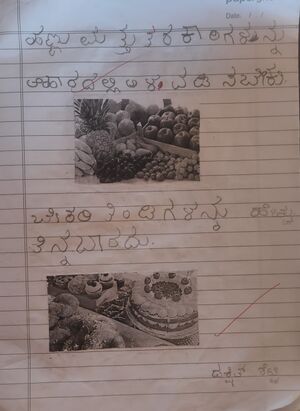 Date: / /
ಹಣ್ಣು ಮತ್ತು ತರಕಾರಿಗಳನ್ನು
ಆಹಾರದಲ್ಲಿ ಅಳವಡಿಸಬೇಕು
ಬೇಕರಿ ತಿಂಡಿಗಳನ್ನು ಹೆಚ್ಚು
ತಿನ್ನಬಾರದು.